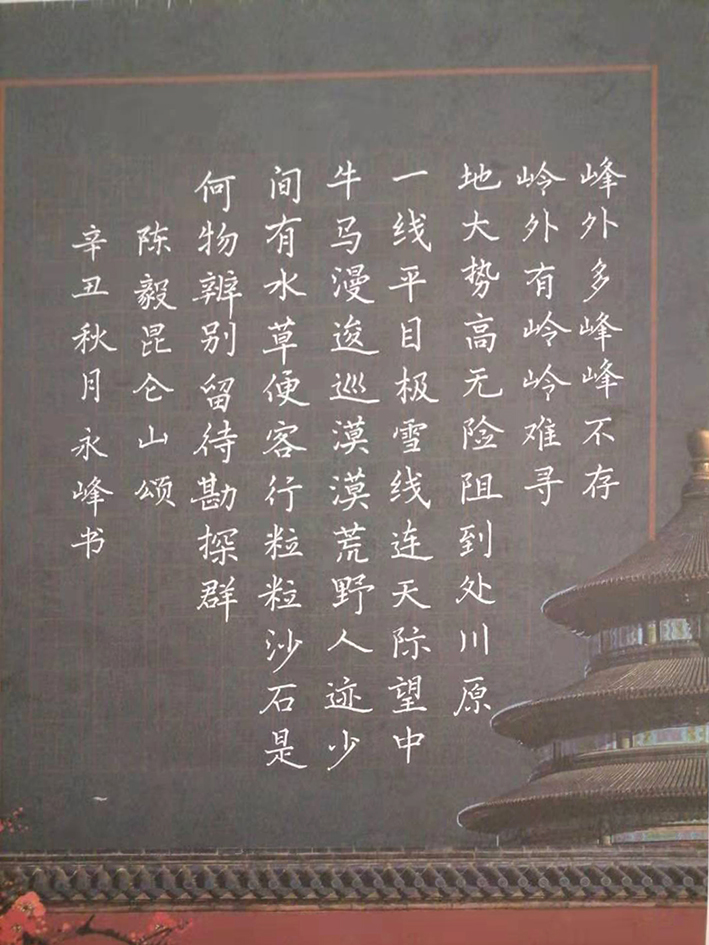 峰外多峰峰不存
岭外有岭岭难寻
地大势高无险阻到处川原
一线平目极雪线连天际望中
牛马漫逡巡漠漠荒野人迹少
间有水草便客行粒粒沙石是
何物辨别留待勘探群
陈毅昆仑山颂
辛丑秋月永峰书